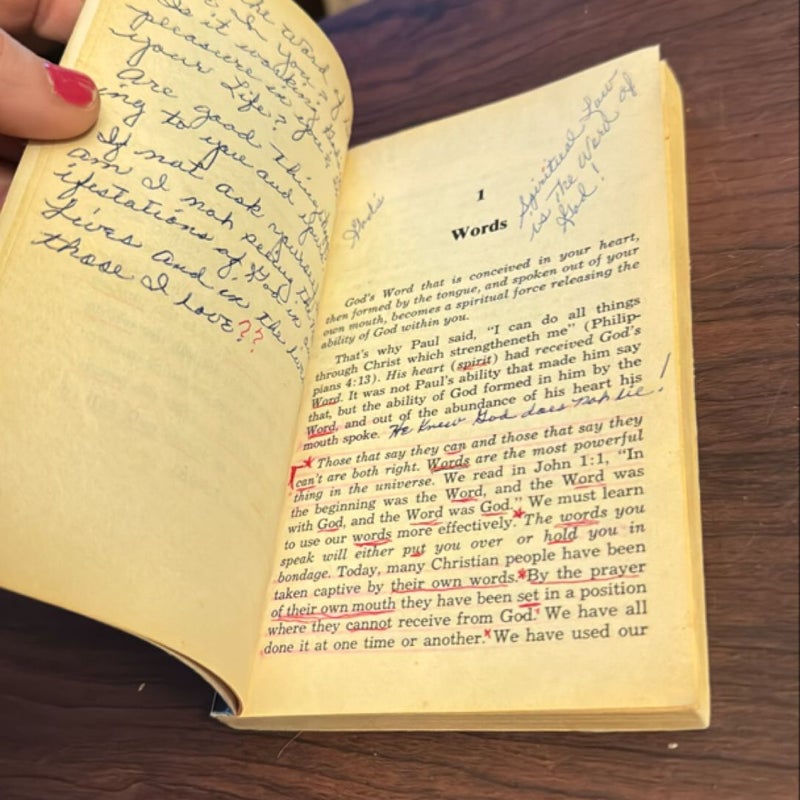 the Word
in you?
Is it working
pleasure in you &
your Life?
Are good Things
ing to you and
If not ask yourself
am I not
ifestations of God in
Lives and in the
those I love??
God's
Spiritual Law
is The Word of
God!
1
Words
God's Word that is conceived in your heart,
then formed by the tongue, and spoken out of your
own mouth, becomes a spiritual force releasing the
ability of God within you.
That's why Paul said, "I can do all things
through Christ which strengtheneth me" (Philip-
pians 4:13). His heart (spirit) had received God's
Word. It was not Paul's ability that made him say
that, but the ability of God formed in him by the
Word, and out of the abundance of his heart his
mouth spoke. He Knew God does not lie!
Those that say they can and those that say they
can't are both right. Words are the most powerful
thing in the universe. We read in John 1:1, "In
the beginning was the Word, and the Word was
with God, and the Word was God." We must learn
to use our words more effectively. The words you
speak will either put you over or hold you in
bondage. Today, many Christian people have been
taken captive by their own words. By the prayer
of their own mouth they have been set in a position
where they cannot receive from God. We have all
done it at one time or another. We have used our